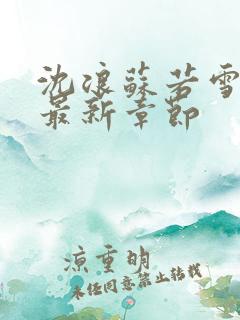 沈浪蘇若雪
最新章節
涼重明
未经同意禁止转载